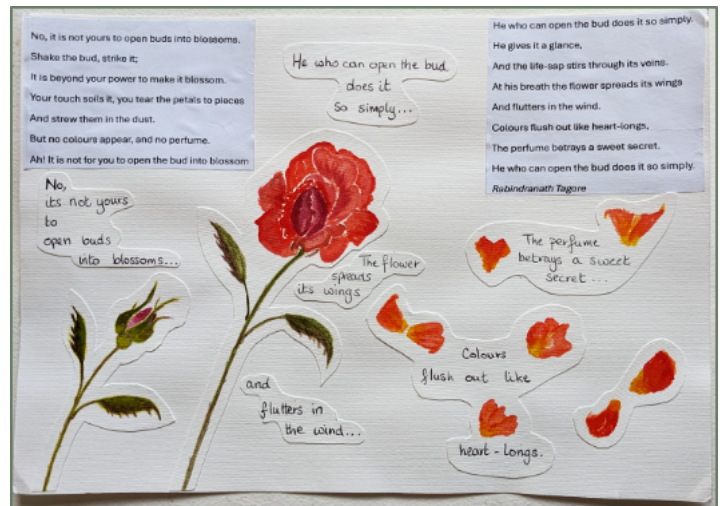 No, it is not yours to open buds into blossoms.
Shake the bud, strike it;
It is beyond your power to make it blossom.
Your touch soils it, you tear the petals to pieces
And strew them in the dust.
But no colours appear, and no perfume.
Ah! It is not for you to open the bud into blossom
He who can open the bud
does it
so simply...
He who can open the bud does it so simply.
He gives it a glance,
And the life-sap stirs through its veins.
At his breath the flower spreads its wings
And flutters in the wind.
Colours flush out like heart-longs,
The perfume betrays a sweet secret.
He who can open the bud does it so simply.
Rabindranath Tagore
No,
its not yours
to
open buds
into blossoms...
The flower
spreads
its wings
and
flutters in
the wind...
The perfume
betrays a sweet
secret...
Colours
flush out like
heart-longs.